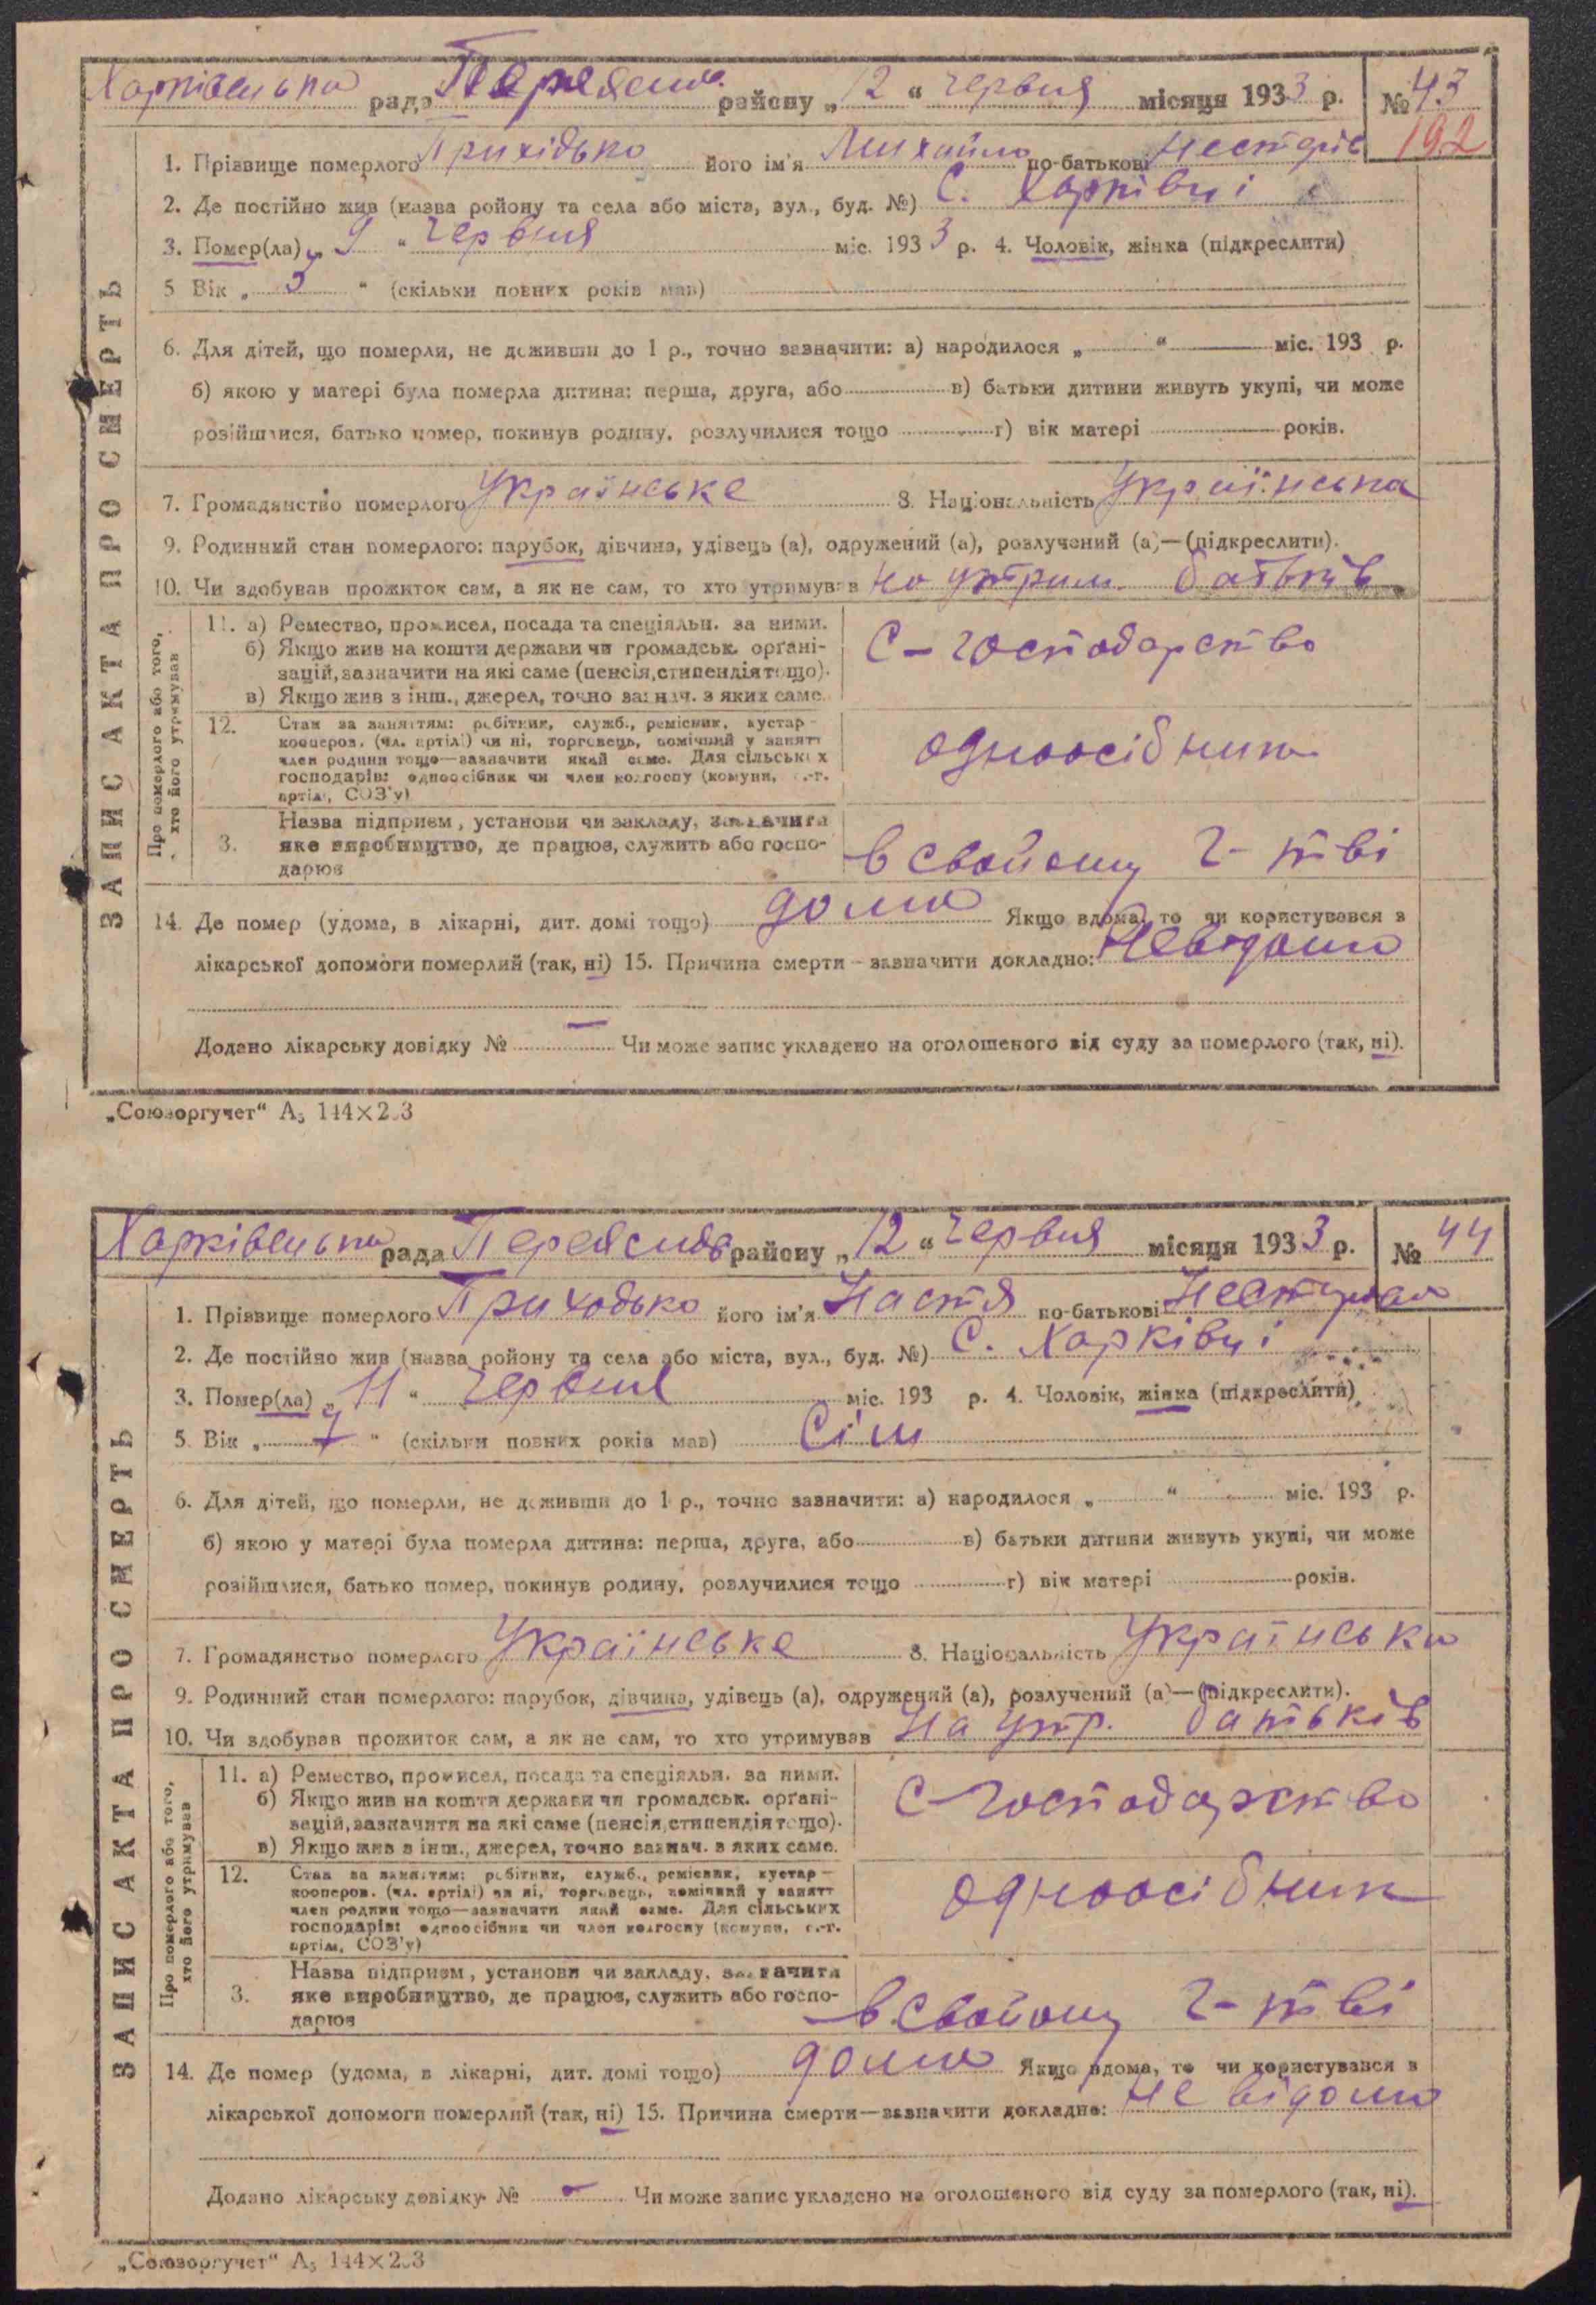 Харківецька рада Переяслав. району „12“ червня місяця 1933 р. № 43
192
1. Прізвище померлого Прихідько його ім'я Михайло по-батькові Нестерів
2. Де постійно жив (назва ройону та села або міста, вул., буд. №) С. Харківці
3. Помер(ла) „9“ червня міс. 1933 р. 4. Чоловік, жінка (підкреслити)
5 Вік „ “ (скільки повних років мав)
6. Для дітей, що померли, не доживши до 1 р., точно зазначити: а) народилося „ “ міс. 193 р.
б) якою у матері була померла дитина: перша, друга, або в) батьки дитини живуть укупі, чи може
розійшлися, батько помер, покинув родину, розлучилися тощо г) вік матері років.
7. Громадянство померлого Українське 8. Національність Українська
9. Родинний стан померлого: парубок, дівчина, удівець (а), одружений (а), розлучений (а)—(підкреслити).
10. Чи здобував прожиток сам, а як не сам, то хто утримував На утрим. батьків
ЗАПИС АКТА ПРО СМЕРТЬ
Про померлого або того, хто його утримував
11. а) Ремество, промисел, посада та спеціяльн. за ними.
б) Якщо жив на кошти держави чи громадськ. органі-
зацій, зазначити на які саме (пенсія, стипендія тощо).
в) Якщо жив з інш., джерел, точно зазнач. з яких саме.
С-господарство
12. Стан за заняттям: робітник, служб., ремісник, кустар-
кооперов. (чл. артілі) чи ні, торговець, помічний у занятт
член родини тощо—зазначити який саме. Для сільських
господарів: одноосібник чи член колгоспу (комуни, с.-г.
артіли, СОЗ'у)
одноосібник
3. Назва підприєм, установи чи закладу, зазначити
яке виробництво, де працює, служить або госпо-
дарює
в свойому г-тві
14. Де помер (удома, в лікарні, дит. домі тощо) дома Якщо вдома, то чи користувався з
лікарської допомоги померлий (так, ні) 15. Причина смерти—зазначити докладно: Невідома
Додано лікарську довідку № — Чи може запис укладено на оголошеного від суду за померлого (так, ні).
„Союзоргучет“ А₅ 144×203
Харківецька рада Переяслав району „12“ червня місяця 1933 р. № 44
1. Прізвище померлого Приходько його ім'я Настя по-батькові
2. Де постійно жив (назва ройону та села або міста, вул., буд. №) С. Харківці
3. Помер(ла) „11“ червня міс. 193 р. 4. Чоловік, жінка (підкреслити)
5. Вік „7“ (скільки повних років мав) Сім
6. Для дітей, що померли, не доживши до 1 р., точно зазначити: а) народилося „ “ міс. 193 р.
б) якою у матері була померла дитина: перша, друга, або в) батьки дитини живуть укупі, чи може
розійшлися, батько помер, покинув родину, розлучилися тощо г) вік матері років.
7. Громадянство померлого Українське 8. Національність Українська
9. Родинний стан померлого: парубок, дівчина, удівець (а), одружений (а), розлучений (а)—(підкреслити).
10. Чи здобував прожиток сам, а як не сам, то хто утримував На утр. батьків
ЗАПИС АКТА ПРО СМЕРТЬ
Про померлого або того, хто його утримував
11. а) Ремество, промисел, посада та спеціяльн. за ними.
б) Якщо жив на кошти держави чи громадськ. органі-
зацій, зазначити на які саме (пенсія, стипендія тощо).
в) Якщо жив з інш., джерел, точно зазнач. з яких саме.
С-господарство
12. Стан за заняттям: робітник, служб., ремісник, кустар—
кооперов. (чл. артілі) чи ні, торговець, помічний у занятт
член родини тощо—зазначити який саме. Для сільських
господарів: одноосібник чи член колгоспу (комуни, с.-г.
артіли, СОЗ'у)
одноосібник
3. Назва підприєм, установи чи закладу, зазначити
яке виробництво, де працює, служить або госпо-
дарює
в свойому г-тві
14. Де помер (удома, в лікарні, дит. домі тощо) дома Якщо вдома, то чи користувався з
лікарської допомоги померлий (так, ні) 15. Причина смерти—зазначити докладно: Не відома
Додано лікарську довідку № — Чи може запис укладено на оголошеного від суду за померлого (так, ні).
„Союзоргучет“ А₅ 144×203